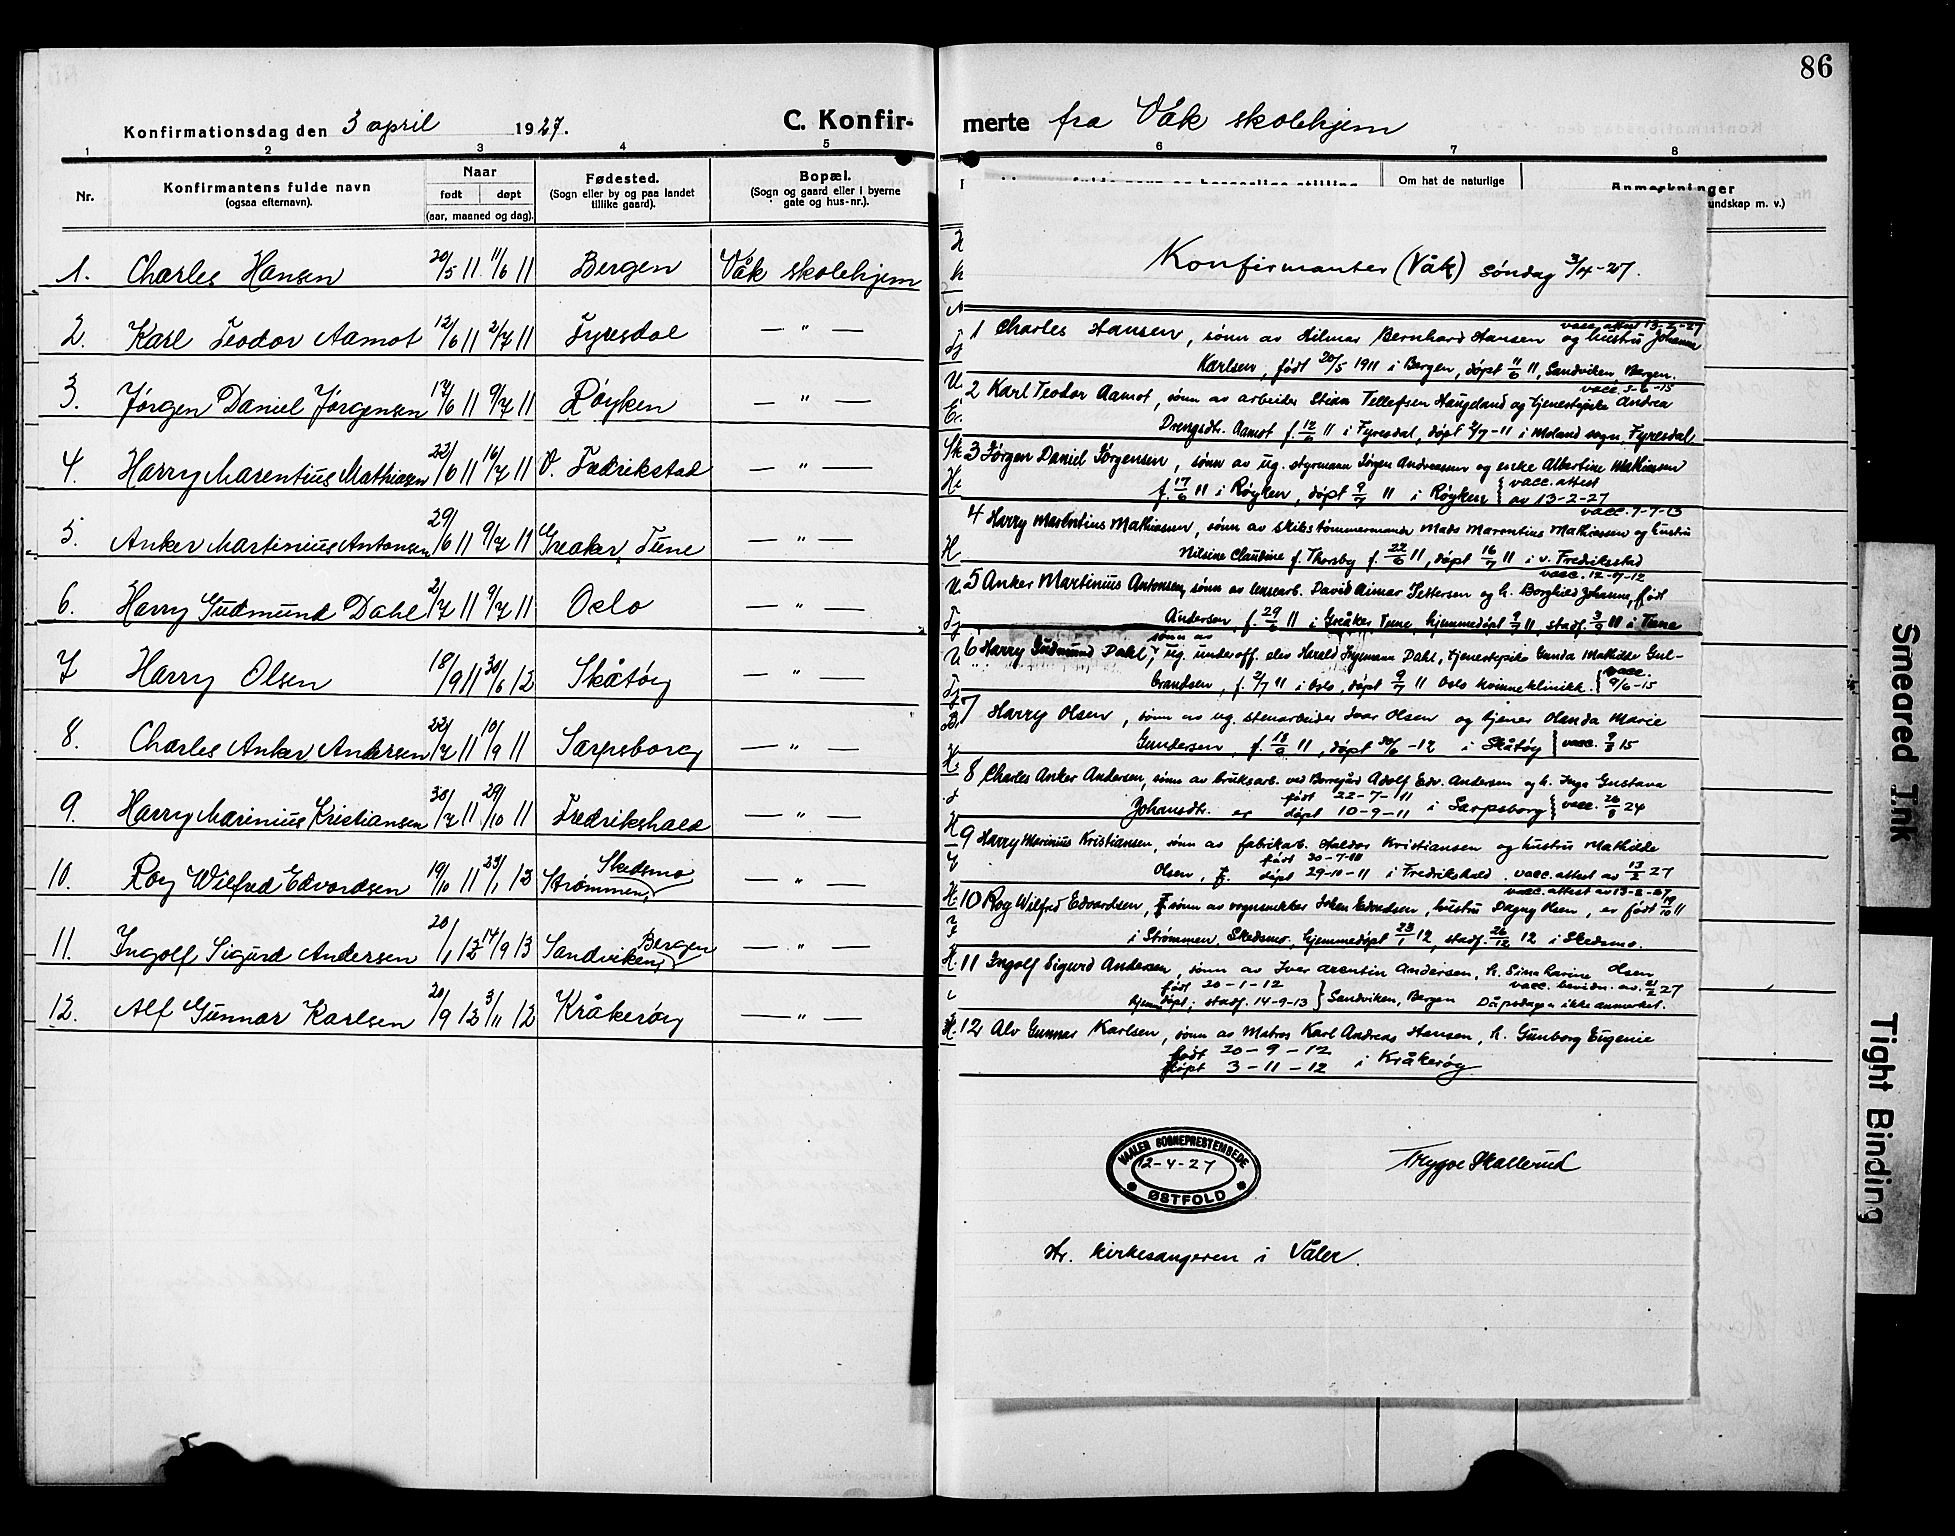 86
Konfirmationsdag den 3 april 1927. C. Konfir-
merte fra Våk skolehjem
1 2 3 4 5
6 7 8
Nr. Konfirmantens fulde navn (ogsaa efternavn). Naar født døpt (aar, maaned og dag). Fødested. (Sogn eller by og paa landet tillike gaard). Bopæl. (Sogn og gaard eller i byerne gate og hus-nr.).
Om hat de naturlige
Anmerkninger
undskap m. v.)
1. Charles Hansen 20/5 11 11/6 11 Bergen Våk skolehjem
2. Karl Teodor Aamot 12/6 11 2/7 11 Fyresdal — " —
3. Jørgen Daniel Jørgensen 17/6 11 9/7 11 Røyken — " —
4. Harry Marentius Mathiasen 22/6 11 16/7 11 V. Fredrikstad — " —
5. Anker Martinius Antonsen 29/6 11 9/7 11 Greaker, Tune — " —
6. Harry Gudmund Dahl 2/7 11 9/7 11 Oslo — " —
7 Harry Olsen 18/9 11 30/6 12 Skåtøy — " —
8. Charles Anker Andersen 22/7 11 10/9 11 Sarpsborg — " —
9. Harry Marinius Kristiansen 30/7 11 29/10 11 Fredrikshald — " —
10. Roy Wilfred Edvardsen 19/10 11 23/1 12 Strømmen, Skedsmo — " —
11. Ingolf Sigurd Andersen 20/1 12 14/9 13 Sandviken, Bergen — " —
12. Alf Gunnar Karlsen 20/9 12 3/11 12 Kråkerøy — " —
Konfirmanter (Våk) søndag 3/4-27.
vacc. attest 13-2-27
1 Charles Hansen, sønn av Hilmar Bernhard Hansen og hustru Johanna
Karlsen, født 20/5 1911 i Bergen, døpt 11/6 11, Sandviken Bergen.
vacc. 3-6-15
2 Karl Teodor Aamot, sønn av arbeider Stian Tellefsen Haugeland og tjenestepike Andrea
Drengsdtr. Aamot f. 12/6 11 i Fyresdal, døpt 2/7-11 i Moland sogn, Fyresdal.
3 Jørgen Daniel Jørgensen, sønn av ug. styrmann Jørgen Andreassen og enke Albertine Mathiasen
f. 17/6 11 i Røyken, døpt 9/7 11 i Røyken { vacc. attest
av 13-2-27
vacc. 7-7-13
4 Harry Marentius Mathiassen, sønn av skibstømmermann Mads Marentius Mathiassen og hustru
Nilsine Claudine f. Thorsby f. 22/6 11, døpt 16/7 11 i v. Fredrikstad
vacc. 12-7-12
5 Anker Martinius Antonsen, sønn av lensearb. David Aimar Pettersen og h. Borghild Johanne, født
Andersen f. 29/6 11 i Greåker Tune, hjemmedøpt 9/7 11, stadf. 3/9 11 i Tune
sønn av
6 Harry Gudmund Dahl, ug. underoff. elev Harald Ingemann Dahl, tjenestepike Gunda Mathilde Gul-
brandsen, f. 2/7 11 i Oslo, døpt 9/7 11 Oslo kvinneklinikk. { vacc. 9/6-15
7 Harry Olsen, sønn av ug. stenarbeider Ivar Olsen og tjener Olanda Marie
Gundersen, f. 18/9 11, døpt 30/6-12 i Skåtøy { vacc. 9/8 15
8 Charles Anker Andersen, sønn av bruksarb. ved Borregård Adolf Edv. Andersen og h. Inga Gustava
Johansdtr. er født 22-7-11
døpt 10-9-11 i Sarpsborg { vacc. 26/8 24
9 Harry Marinius Kristiansen, sønn av fabrikarb. Haldor Kristiansen og hustru Mathilde
Olsen, født 30-7-11
døpt 29-10-11 i Fredrikshald. vacc. attest av 13/2 27
vacc. attest av 13-2-27
10 Roy Wilfred Edvardsen, sønn av vognsnekker Johan Edvardsen, hustru Dagny Olsen, er født 19/10 11
i Strømmen, Skedsmo, hjemmedøpt 23/1 12, stadf. 26/12 12 i Skedsmo.
11 Ingolf Sigurd Andersen, sønn av Iver Arentin Andersen, h. Sina Karine Olsen
født 20-1-12 vacc. bevidn. av. 21/2 27
hjemdøpt; stadf. 14-9-13 } Sandviken, Bergen Dåpsdagen ikke anmerket.
12 Alv Gunnar Karlsen, sønn av Matros Karl Andreas Hansen, h. Gunborg Eugenie
født 20-9-12
døpt 3-11-12 i Kråkerøy
VAALER SOGNEPRESTEMBEDE
12-4-27
ØSTFOLD
Trygve Skallerud
Hr. kirkesangeren i Våler.
Smeared Ink
Tight Binding